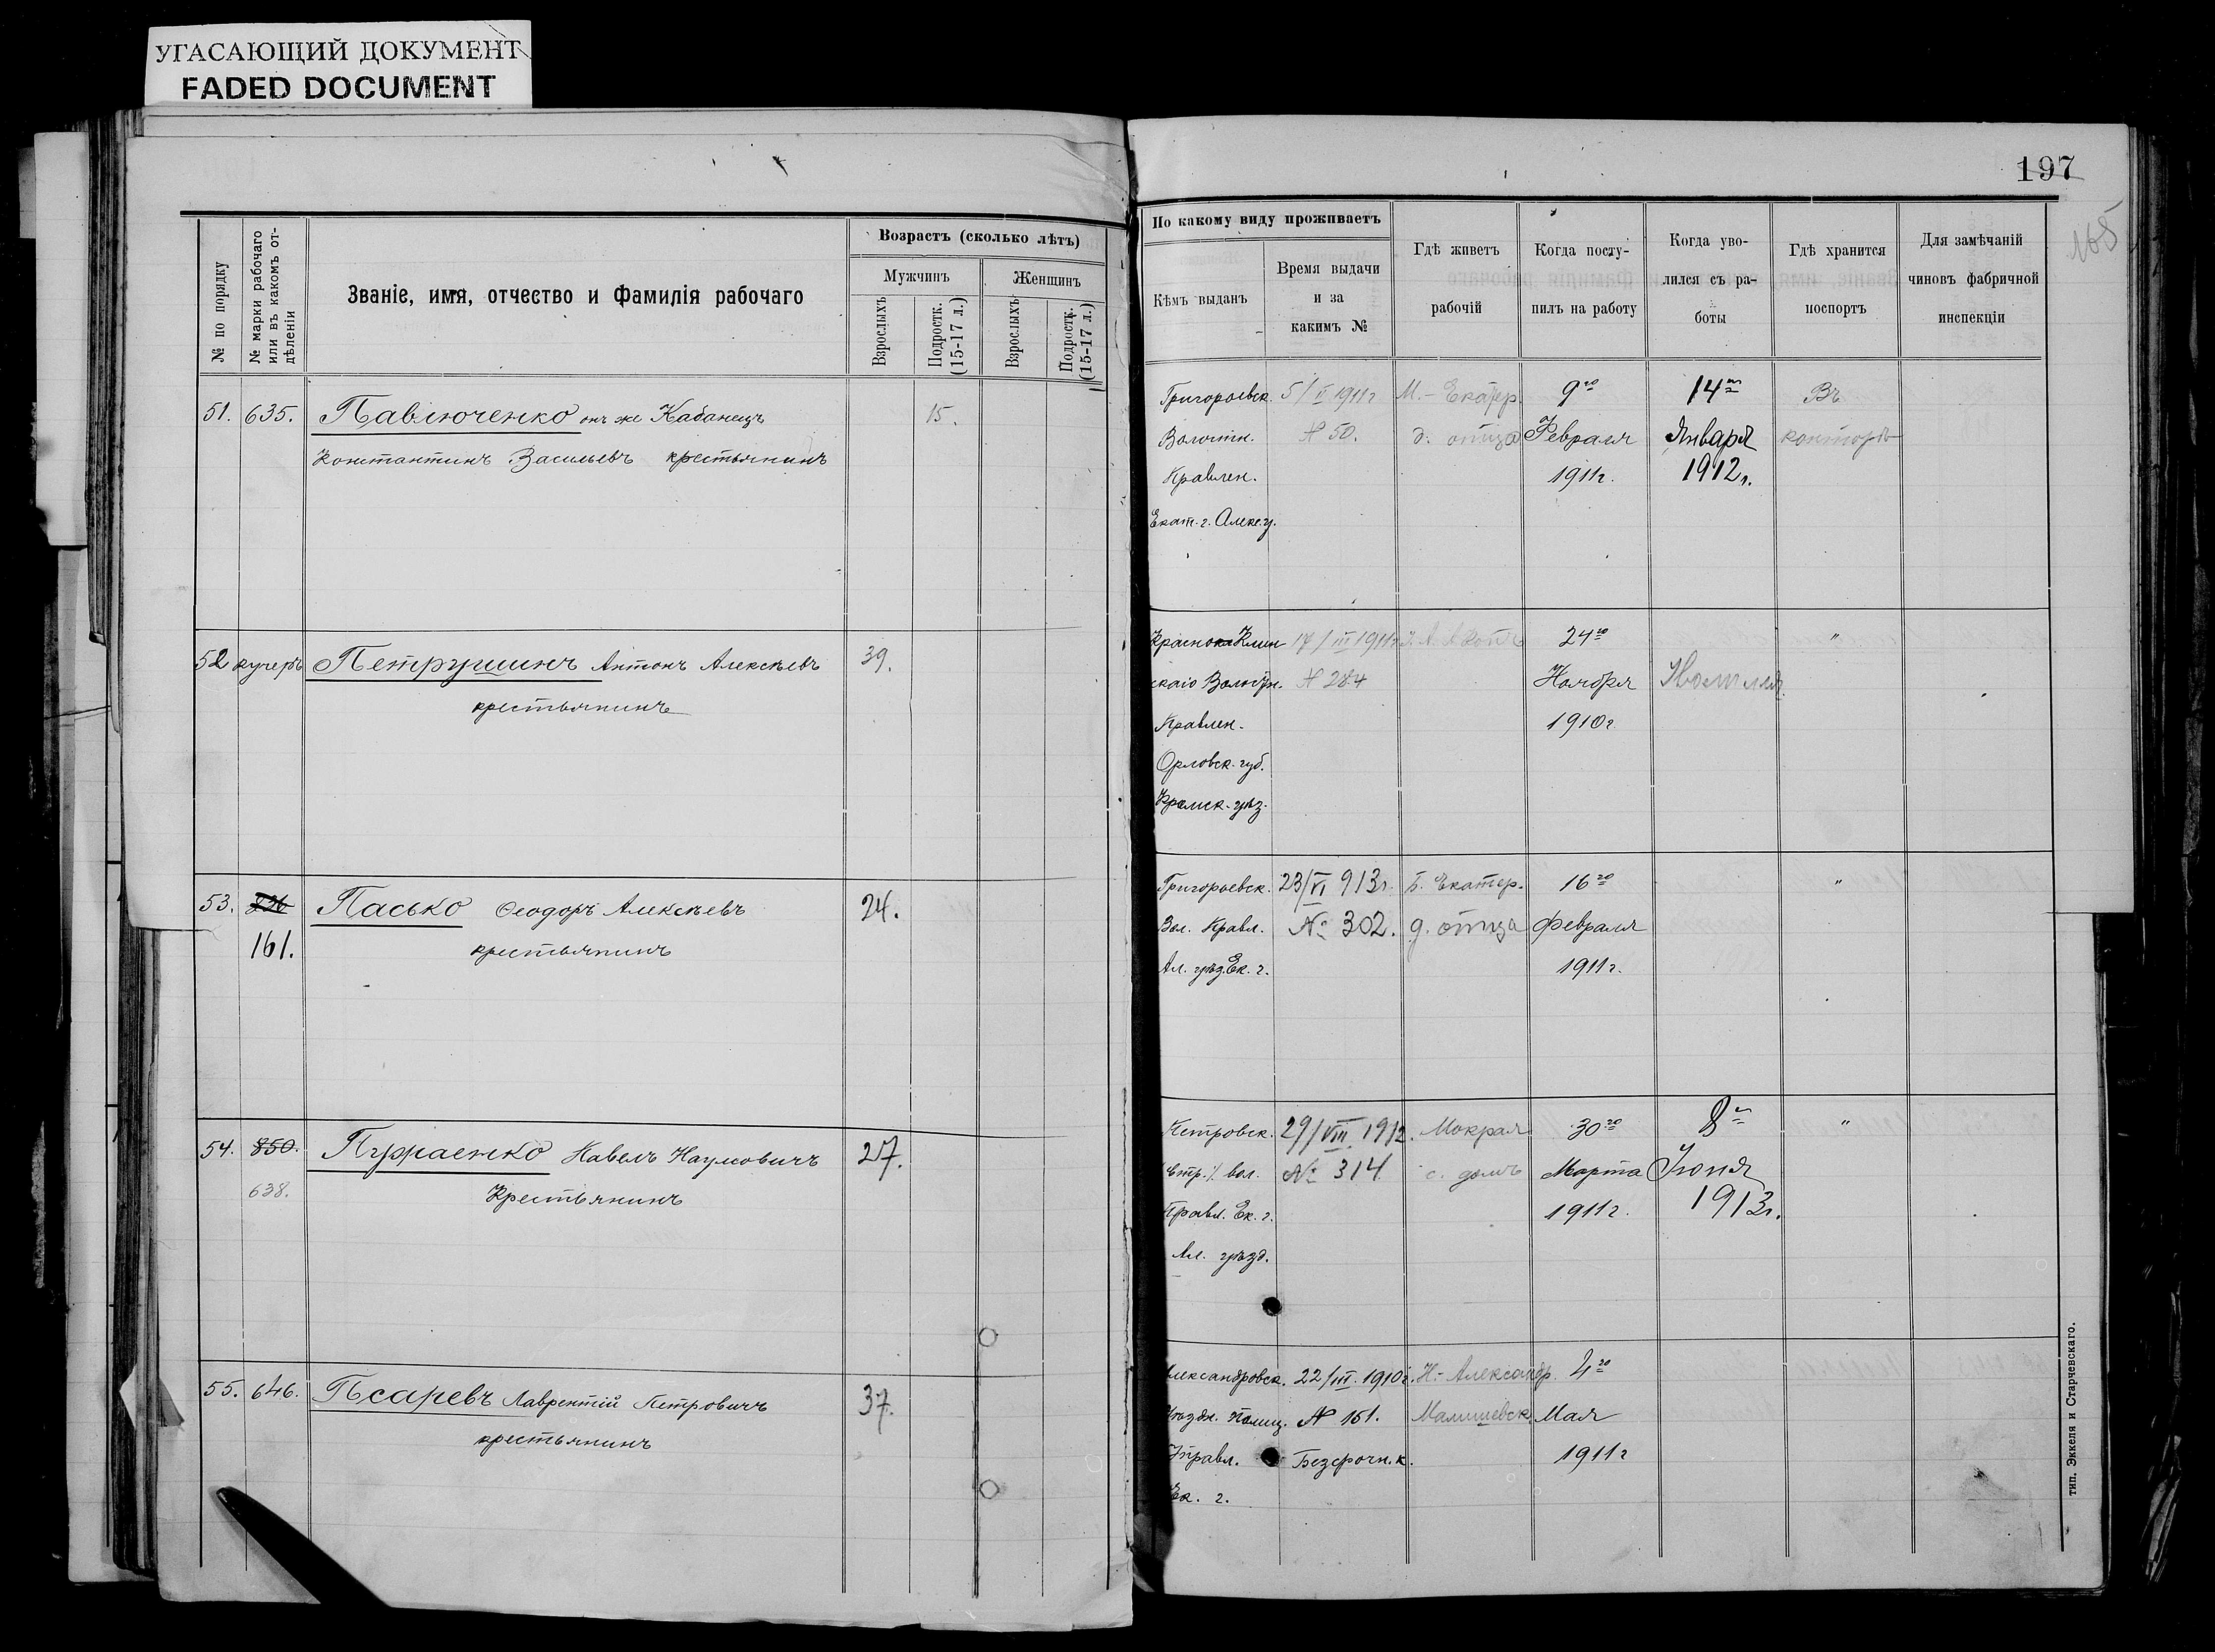 УГАСАЮЩИЙ ДОКУМЕНТ
FADED DOCUMENT
197
165
№ по порядку
№ марки рабочаго или въ какомъ от-дѣленіи
Званіе, имя, отчество и фамилія рабочаго
Возрастъ (сколько лѣтъ)
Мужчинъ
Женщинъ
Взрослыхъ
Подростк. (15-17 л.)
Взрослыхъ
Подростк. (15-17 л.)
По какому виду проживаетъ
Кѣмъ выданъ
Время выдачи
и за
какимъ №
Гдѣ живетъ
рабочій
Когда посту-
пилъ на работу
Когда уво-
лился съ ра-
боты
Гдѣ хранится
паспортъ
Для замѣчаній
чиновъ фабричной
инспекціи
51. 635. Павлюченко онъ же Кабанецъ 15.
Константинъ Васильевъ крестьянинъ
Григорьевск. 5/II 1911г М.-Екатер. 9го 14го Въ
Волостн. № 50. д. отца Февраля Января конторѣ
Правлен. 1911г. 1912г.
Екат. г. Алекс. у.
52 кучеръ Петрушинъ Антонъ Алексѣевъ 39.
крестьянинъ
17/III 1911г 24го "
скаго Волостн. № 284 Ноября
Правлен. 1910г.
Орловск. губ.
уѣз.
53. 226 Пасько Ѳеодоръ Алексѣевъ 24.
161. крестьянинъ
Григорьевск. 23/VI 913г. Б. Екатер. 16го "
Вол. Правл. № 302. д. отца Февраля
Ал. уѣзд. Ек. г. 1911г.
54. 850. Пурраенко Павелъ Наумовичъ 27.
638. Крестьянинъ
Петровск. 29/VIII 1912. Мокрая 30го 8го "
вол. № 314 с. домъ Марта Іюня
Правл. Ек. г. 1911г. 1913г.
Ал. уѣзд.
55. 646. Псаревъ Лаврентій Петровичъ 37.
крестьянинъ
Александровск. 22/III. 1910г. Н.-Александр. 4го
Уѣздн. Полиц. № 151. Малишевск. Мая
Управл. Безсрочн. к. 1911г
Ек. г.
тип. Эккеля и Старчевскаго.